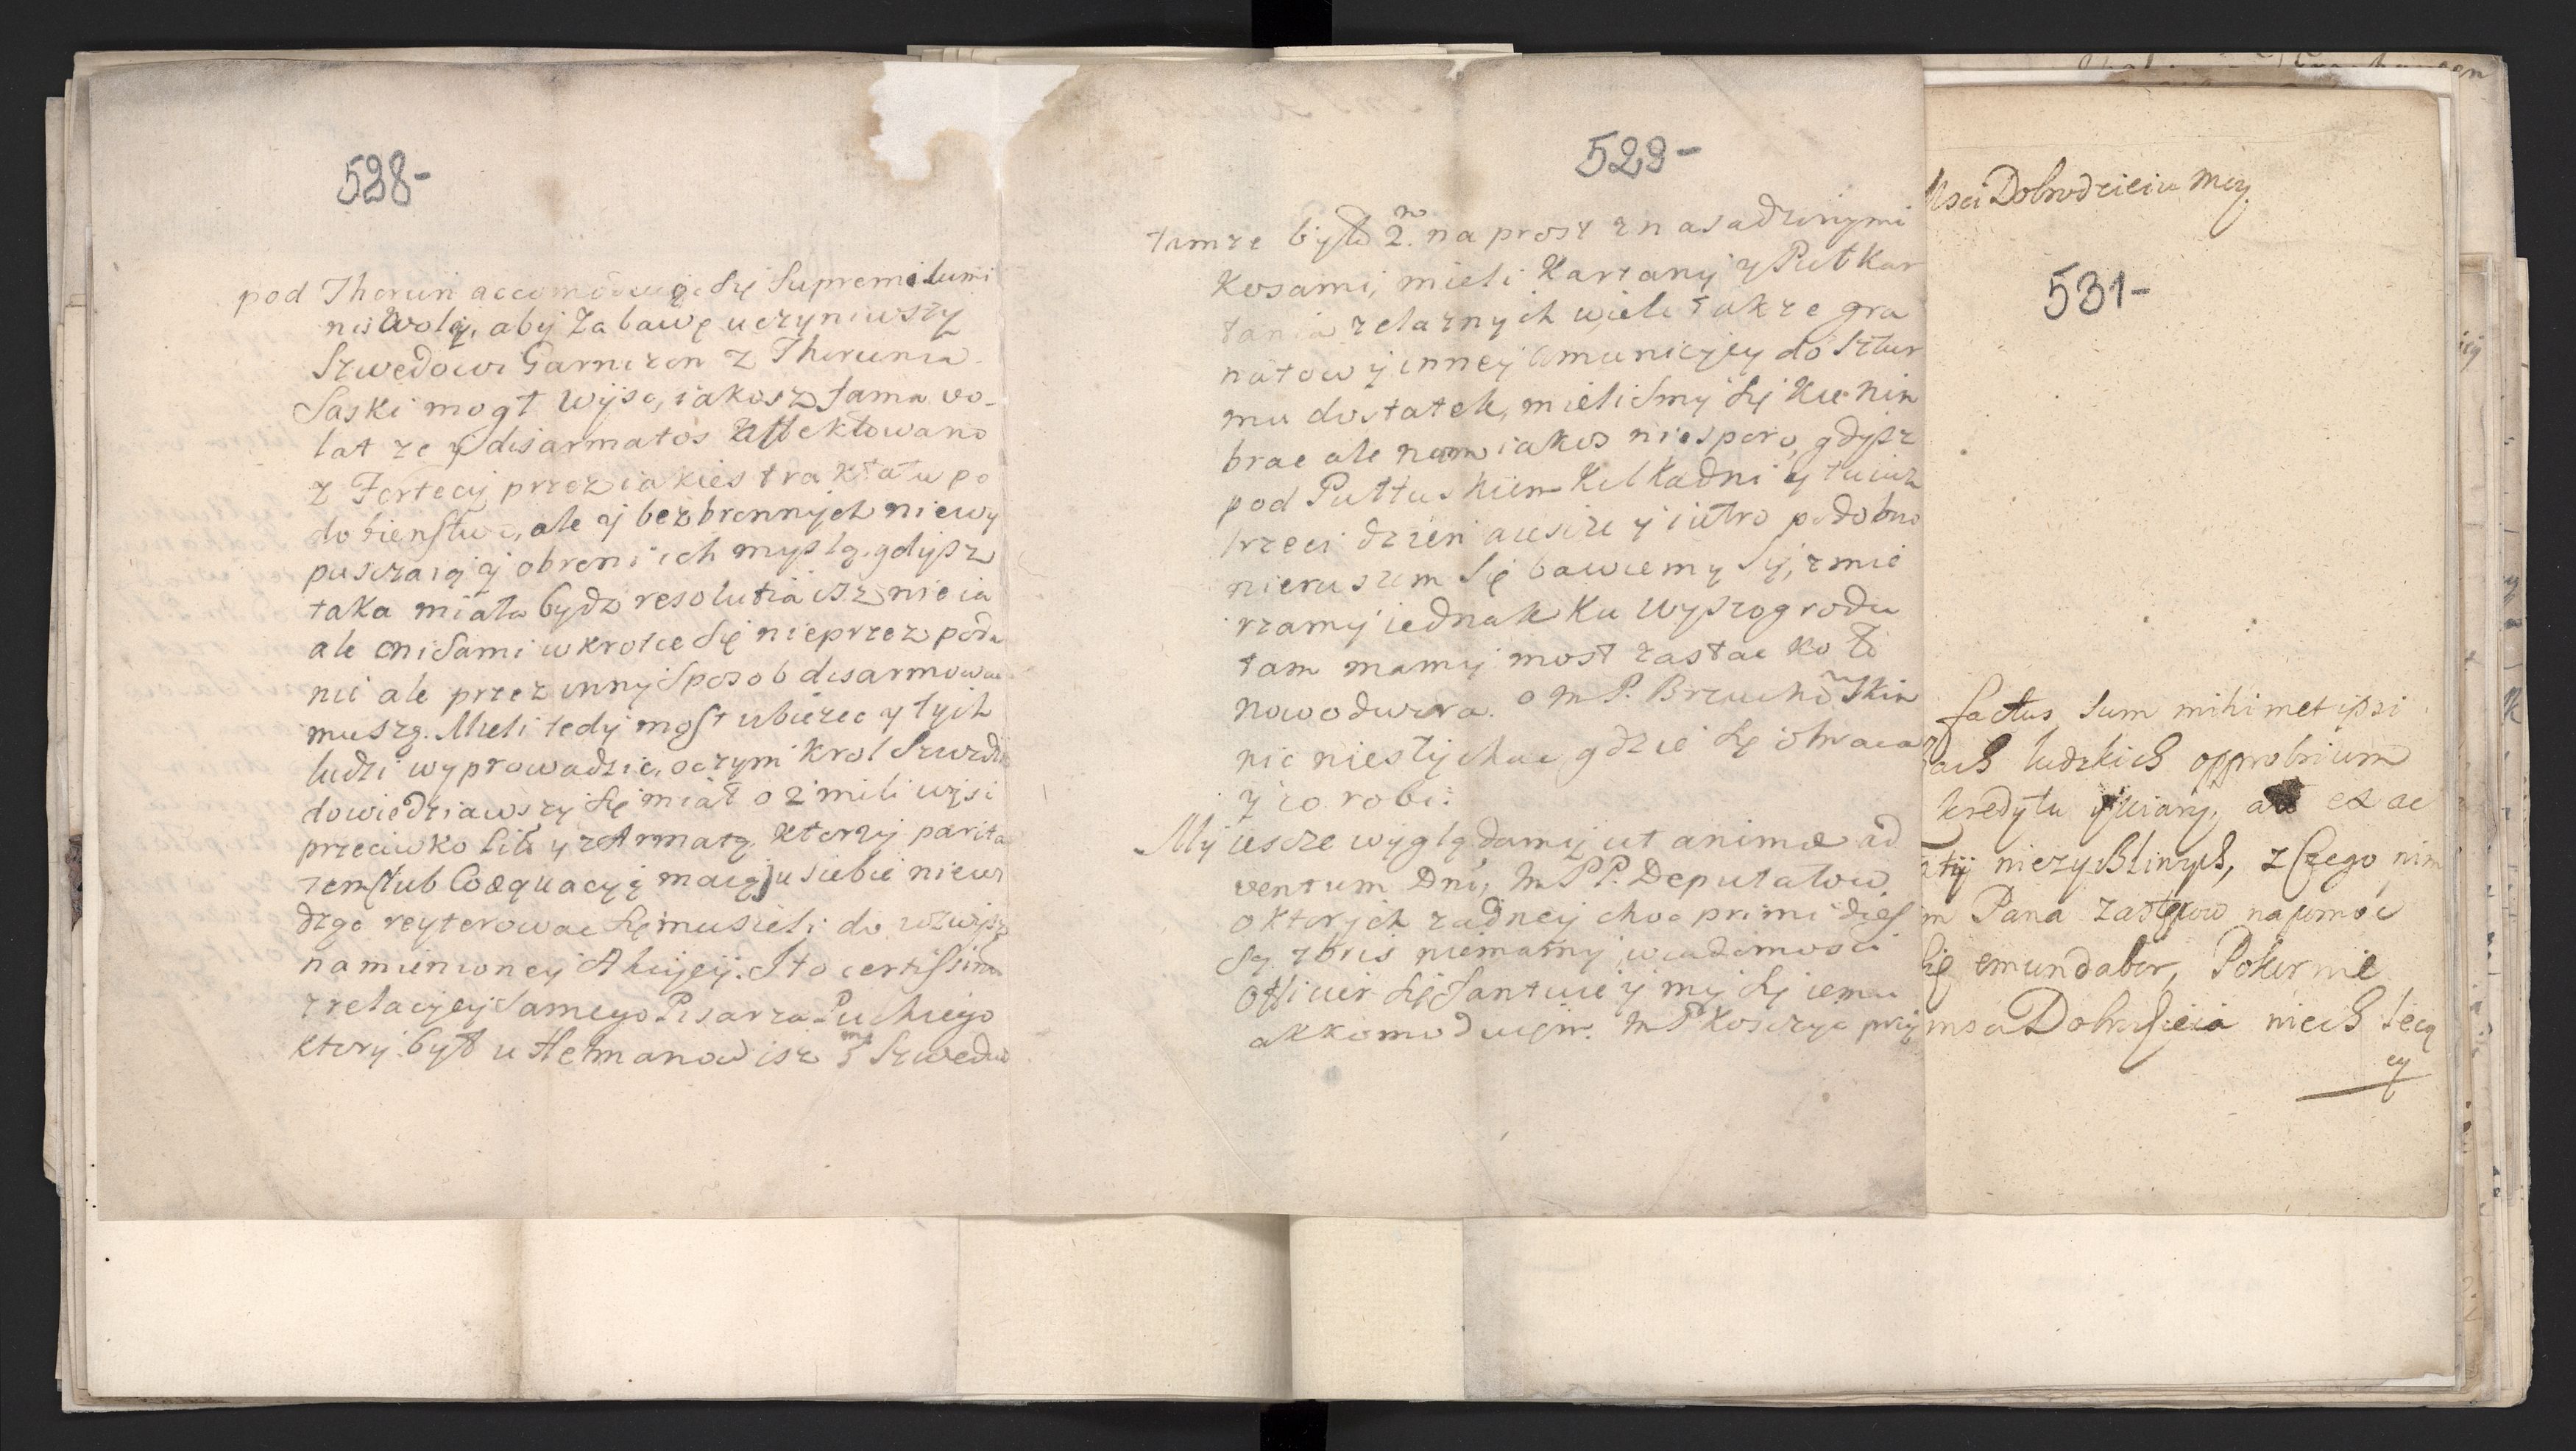 528-
pod Thorun accomoduią Się Supremi lumi
nis Wolą, aby Zabawę uczyniwszy
Szwedowi Garnizon z Thorunia
Saski mogł wyisc, iakosz fama vo-
lat ze y disarmatos affektowano
z Fortecy przez iakies traktatu po
dobienstwo, ale y bezbronnych niewy
pusczaią y obroni ich myslą, gdysz
taka miała bydz resolutia isz nie ia
ale oni Sami wkrotce Się nieprzez poda
nie ale przez inny Sposob disarmowac
muszą. Mieli tedy most ubiezec y tych
ludzi wyprowadzic, oczym Krol Szwedzki
dowiedziawszy Się miał o 2 mili wysc
przeciwko Lit y z Armatą, ktorzy parita
tem lub Coæquacyą maiąc u siebie niewi
dząc reyterowac Się musieli do
namienioney Akcyey. Sto certissimum
z relacyey Samego Pisarza
ktory był u Hetmanow isz Szwedow
529-
tamze było 2. na prost z nasadzonymi
Kosami, mieli Kartany y Put Kar
tania zelaznych wiele takze gra
natow y inney Amunicyey do Sztur
mu dostatek, mielismy Się Ku nim
brac ale nam iakos niesporo, gdysz
pod Pułtuskiem Kilkadni y tu iuz
trzeci dzien a iescze y iutro podobno
nieruszem Się bawiemy Się, zmie
rzamy iednak Ku Wyszogrodu
tam mamy most zastac koło
nowodwora. o m P. Brzuchowskim
nic niesłychac gdzie Się obraca
y co robi:
My iescze wyglądamy ut animæ ad
ventum Dni, m PP. Deputatow
o ktorych zadney choc primi dies
Są zbris niemamy wiadomosci
Officier Się Santuie y my Się iemu
akkomoduięm. m P Koszczyc przy
Msci Dobrodzieiu mcy.
531-
factus sum mihimet ipsi
ludzkich opprobrium
kredytu y wiary, ex ac
nieżyczliwych, z Czego nim
Pana zastępow na pomoc
emundabor, Pokornie
Dobrodzieia niech lecą
cy